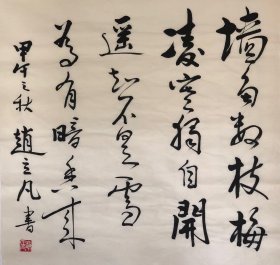 墙角数枝梅
凌寒独自開
遥知不是雪
為有暗香来
甲午之秋 趙立凡書